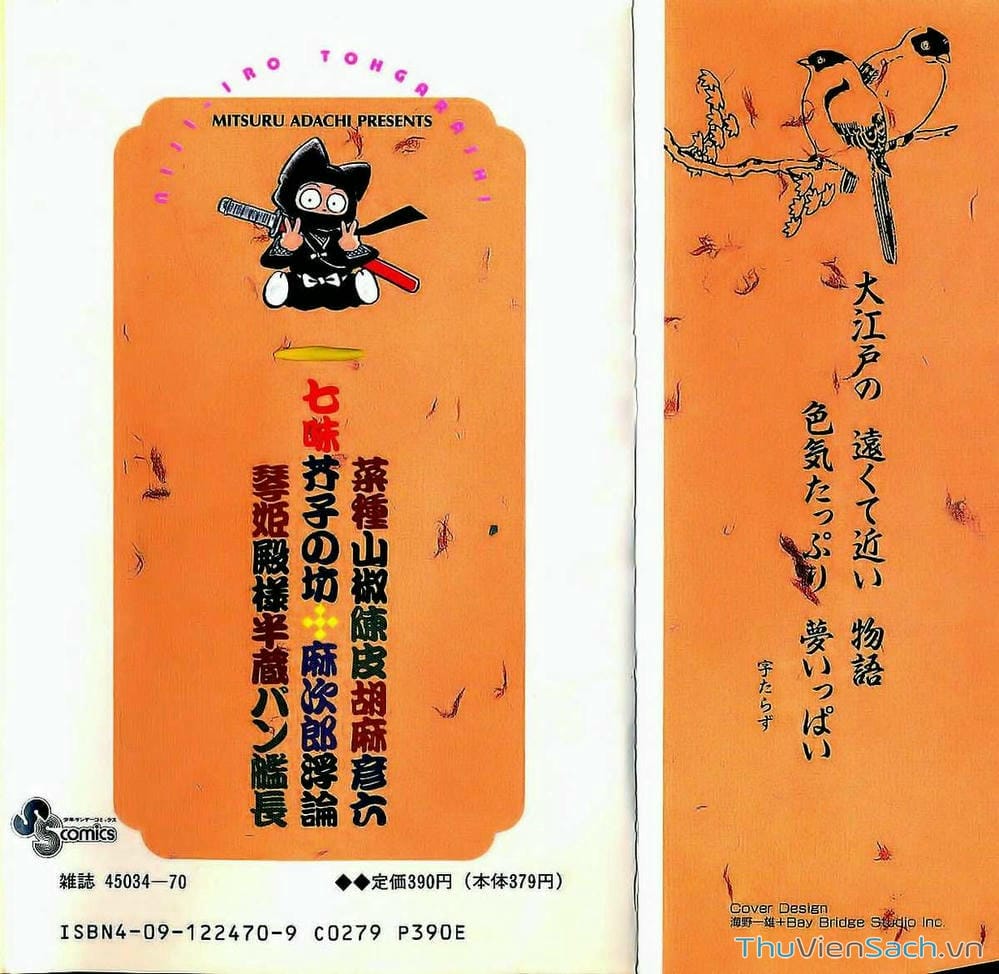 NIJI-IRO TOHGARASHI
MITSURU ADACHI PRESENTS
菜種山椒陳皮胡麻彦六
七味芥子の坊麻次郎浮論
琴姫殿様半蔵パン艦長
少年サンデーコミックス
SS comics
雑誌 45034—70
◆◆定価390円（本体379円）
ISBN4-09-122470-9 C0279 P390E
大江戸の 遠くて近い 物語
色気たっぷり 夢いっぱい
字たらず
Cover Design
海野一雄+Bay Bridge Studio Inc.
ThuVienSach.vn